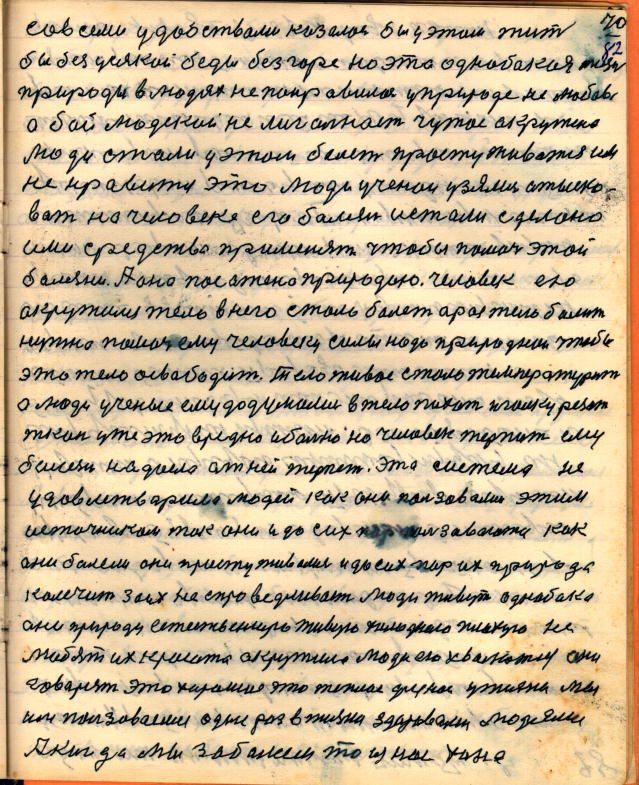 70
82
со всеми удобствами казалося бы у этом жит
бы без усякой беды без горе но эта однобакая жизн
природы в людях не понравилося у природе не любов
а бой людской не лигча
люди стали у этом болет простужыватся им
не нравится это люди ученои узялися отыско-
ват на человеке его болезн и стали сделано
ими средства применят чтобы помоч этой
болезни. А оно посажено природою. человек ею
окружился тело в него стало болет а раз тело болит
нужно помоч ему человеку силы надо природнои чтобы
это тело освободит. Тело живое стало температурит
а люди ученые ему додумалися в тело пихат иголку резат
ткан уже это вредно и болно но человек терпит ему
болезн надоела от ней терпет. Эта система не
удовлетварила людей как они ползовалис этим
источником так они и до сих пор ползаваются как
они болели они простужывалис и до сих пор их природа
колечит за их несправедливост люди живут однобако
они природу естественную живую холодного плохую не
любят их красота окружила люди ею хвалются они
говарят это харошое это теплое друное у жизни мы
им ползоваемся один раз в жизни здоровами людями
А когда мы заболеем то у нас